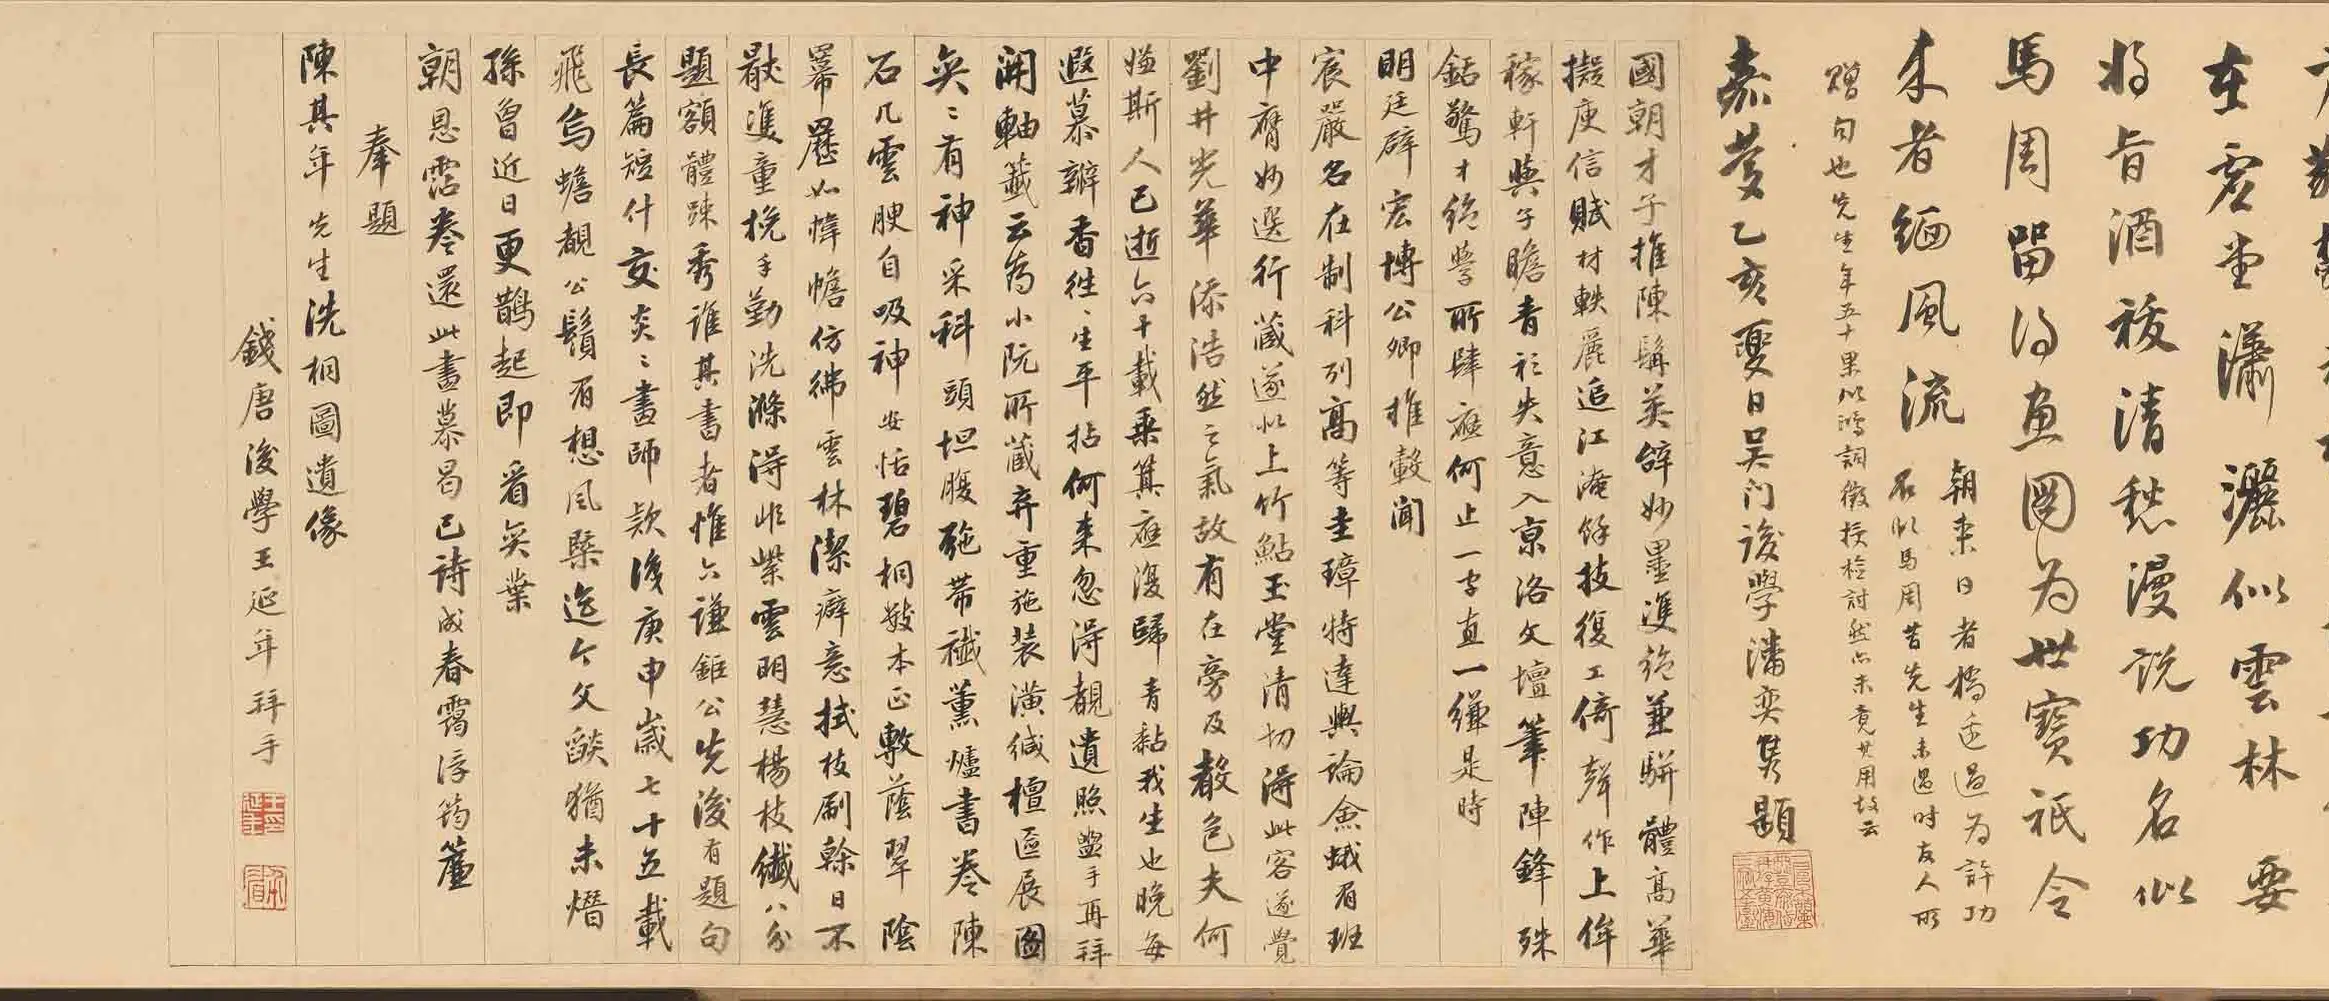 在虛堂瀟灑似雲林要
將旨酒祓清愁漫説功名似
馬周留得畫圖為世寶祇令
來者緬風流
朝來日者橋邊過為許功
名似馬周昔先生未遇時友人所
贈句也先生年五十果以鴻詞徵授檢討然亦未竟其用故云
嘉慶乙亥夏日吳门後學潘奕雋題
國朝才子推陳髯英辭妙墨雙絕兼駢體高華
擬庾信賦材軼麗追江淹餘技復工倚聲作上侔
稼軒與子瞻青衫失意入京洛文壇筆陣鋒殊
銛驚才絕學所肆應何止一字直一縑是時
明廷辟宏博公卿推轂聞
宸嚴名在制科列高等圭璋特達輿論僉蛾眉班
中膺妙選行藏遂似上竹鮎玉堂清切得此客遂覺
劉井光華添浩然之氣故有在旁及聲色夫何
嫌斯人已逝六十載乘箕應復歸青黏我生也晚每
遐慕瓣香往〻生平拈何來忽得覩遺照盥手再拜
開軸籤云為小阮所藏弆重施裝潢緘檀匳展圖
奕〻有神采科頭坦腹拖帶襳薰爐書卷陳
石几雲腴自吸神安恬碧桐數本正敷蔭翠陰
羃䍥如幃幨仿彿雲林潔癖意拭枝刷幹日不
厭雙童挽手勤洗滌得非紫雲明慧楊枝纖八分
題額體踈秀誰其書者惟六謙鉅公先後有題句
長篇短什交炎〻畫師欵後庚申歲七十五載
飛烏蟾覩公鬚眉想風槩迄今文燄猶未熸
孫曾近日更鵲起即看奕葉
朝恩霑卷還此畫慕曷已詩成春靄浮筠簾
奉題
陳其年先生洗桐圖遺像
錢唐後學王延年拜手